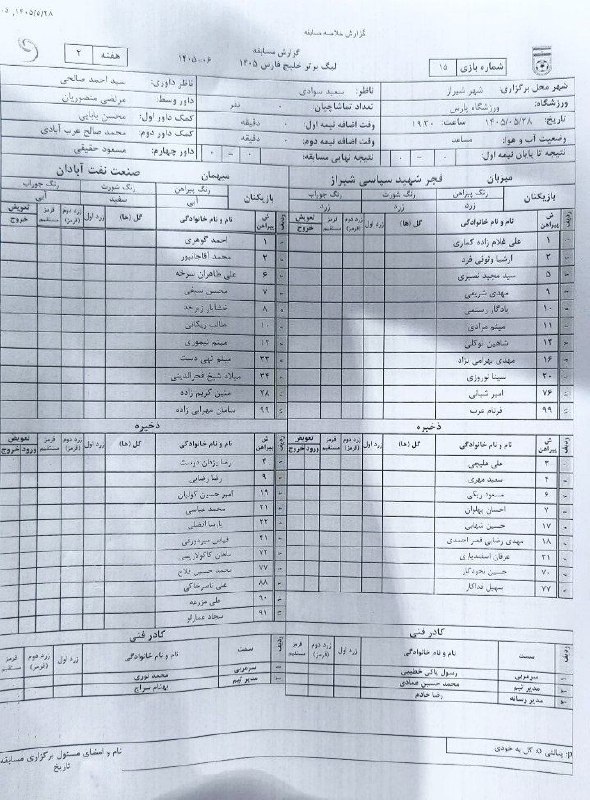 گزارش خلاصه مسابقه
۱۴۰۵/۵/۲۸
گزارش مسابقه
لیگ برتر خلیج فارس ۱۴۰۵ ۰۶-۱۴۰۵
شماره بازی ۱۵
هفته ۲
شهر محل برگزاری: شهر شیراز
ورزشگاه: ورزشگاه پارس
تاریخ: ۱۴۰۵/۰۵/۲۸ ساعت: ۱۹:۳۰
وضعیت آب و هوا: مساعد
نتیجه تا پایان نیمه اول: ۰ - ۰
ناظر: سعید سوادی
تعداد تماشاچیان: ۰ نفر
وقت اضافه نیمه اول: دقیقه
وقت اضافه نیمه دوم: دقیقه
نتیجه نهایی مسابقه: ۰ - ۰
ناظر داوری: سید احمد صالحی
داور وسط: مرتضی منصوریان
کمک داور اول: محسن بنایی
کمک داور دوم: محمد صالح عرب آبادی
داور چهارم: مسعود حقیقی
میزبان: فجر شهید سپاسی شیراز
بازیکنان رنگ پیراهن رنگ شورت رنگ جوراب
زرد زرد زرد
ردیف ش پیراهن نام و نام خانوادگی گل (ها) زرد اول زرد دوم (قرمز) قرمز مستقیم تعویض خروج
۱ علی غلام زاده کماری
ارشیا وثوقی فرد
۵ سید مجید نصیری
۹ مهدی شریفی
۱۰ یادگار رستمی
۱۱ میثم مرادی
۱۴ شاهین توکلی
۱۶ مهدی بهرامی نژاد
۲۰ سینا نوروزی
۷۶ امیر شبانی
۹۹ فرنام عرب
ذخیره
ردیف ش پیراهن نام و نام خانوادگی گل (ها) زرد اول زرد دوم (قرمز) قرمز مستقیم تعویض ورود خروج
علی خلیجی
سعید مهری
۶ مسعود ریگی
احسان پهلوان
۱۷ حسین شهابی
۱۸ مهدی رضایی قمر احمدی
۲۱ عرفان اسفندیاری
۷۰
۷۷ سهیل فداکار
کادر فنی
ردیف سمت نام و نام خانوادگی زرد اول زرد دوم (قرمز) قرمز مستقیم
۱ سرمربی رسول پاکی خطیبی
۲ مدیر تیم محمد حسین عمادی
۳ مدیر رسانه رضا خادم
میهمان: صنعت نفت آبادان
بازیکنان رنگ پیراهن رنگ شورت رنگ جوراب
آبی سفید آبی
ردیف ش پیراهن نام و نام خانوادگی گل (ها) زرد اول زرد دوم (قرمز) قرمز مستقیم تعویض خروج
۱ احمد گوهری
محمد آقاجانپور
۶ علی طاهران سرخه
۷ محسن سیفی
۸
۱۰ طالب ریکانی
۱۲ میثم تیموری
۳۳ میثم تهی دست
۳۴ میلاد شیخ فخرالدینی
۲۸ متین کریم زاده
سامان مهرابی زاده
ذخیره
ردیف ش پیراهن نام و نام خانوادگی گل (ها) زرد اول زرد دوم (قرمز) قرمز مستقیم تعویض ورود خروج
رضا یزدان دوست
۹ رضا رضایی
۱۹ امیر حسین
۲۱ محمد عباسی
۲۲
۴۱
۷۲
۷۷ محمد حسین فلاح
۸۸ علی ناصرخاکی
۹۰ علی مزرعه
۹۱ سجاد عمارلو
کادر فنی
ردیف سمت نام و نام خانوادگی زرد اول زرد دوم (قرمز) قرمز مستقیم
۱ سرمربی محمد نوری
۲ مدیر تیم بهنام سراج
p: پنالتی o: گل به خودی
نام و امضای مسئول برگزاری مسابقه
تاریخ